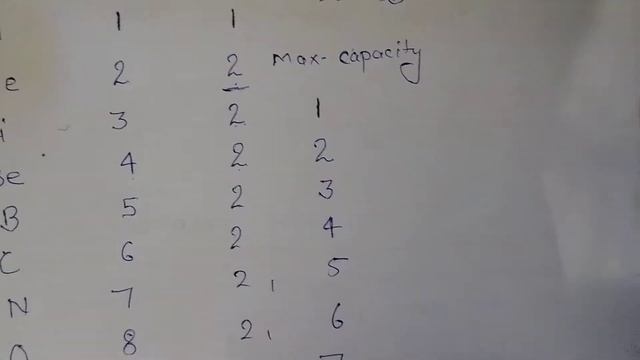 1 1
e 2 2 max- capacity
3 2 1
Be 4 2 2
B 5 2 3
C 6 2 4
N 7 2, 5
O 8 2, 6
7